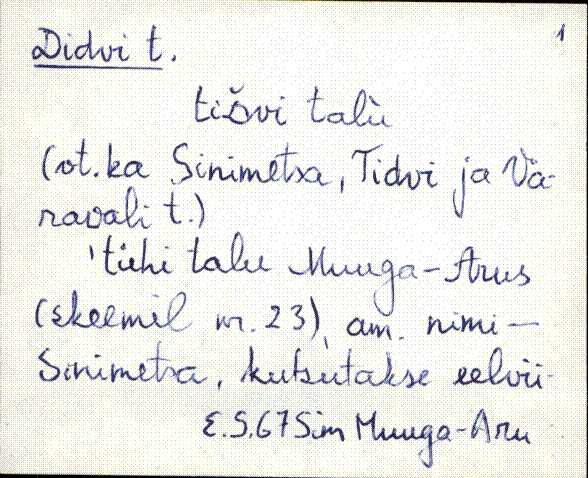 1
Didvi t.
tiδvi talù
(vt. ka Sinimetsa, Tidvi ja Vä-
ravali t.)
'tühi talu Muuga-Arus
(skeemil nr. 23), am. nimi -
Sinimetsa, kutsutakse eelvii-
E.S. 67 Sim Muuga-Aru